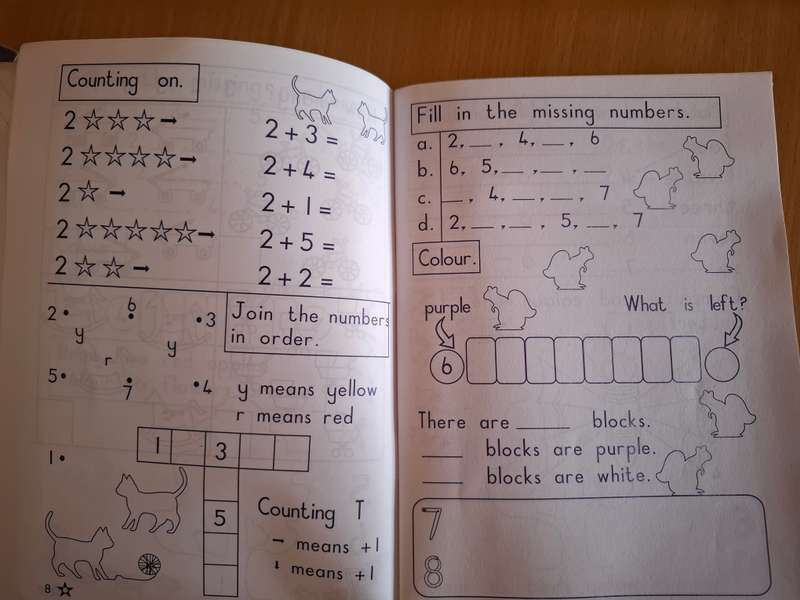 Counting on.
2 ☆☆☆ →
2 + 3 =
2 ☆☆☆☆ →
2 + 4 =
2 ☆ →
2 + 1 =
2 ☆☆☆☆☆ →
2 + 5 =
2 ☆☆ →
2 + 2 =
Join the numbers
in order.
2• 6• •3
y y
r
5• 7• •4
y means yellow
r means red
1•
1 3
5
Counting T
→ means +1
↓ means +1
8 ☆
Fill in the missing numbers.
a. 2, __, 4, __, 6
b. 6, 5, __, __, __
c. __, 4, __, __, 7
d. 2, __, __, 5, __, 7
Colour.
purple What is left?
6
There are _____ blocks.
___ blocks are purple.
___ blocks are white.
7
8